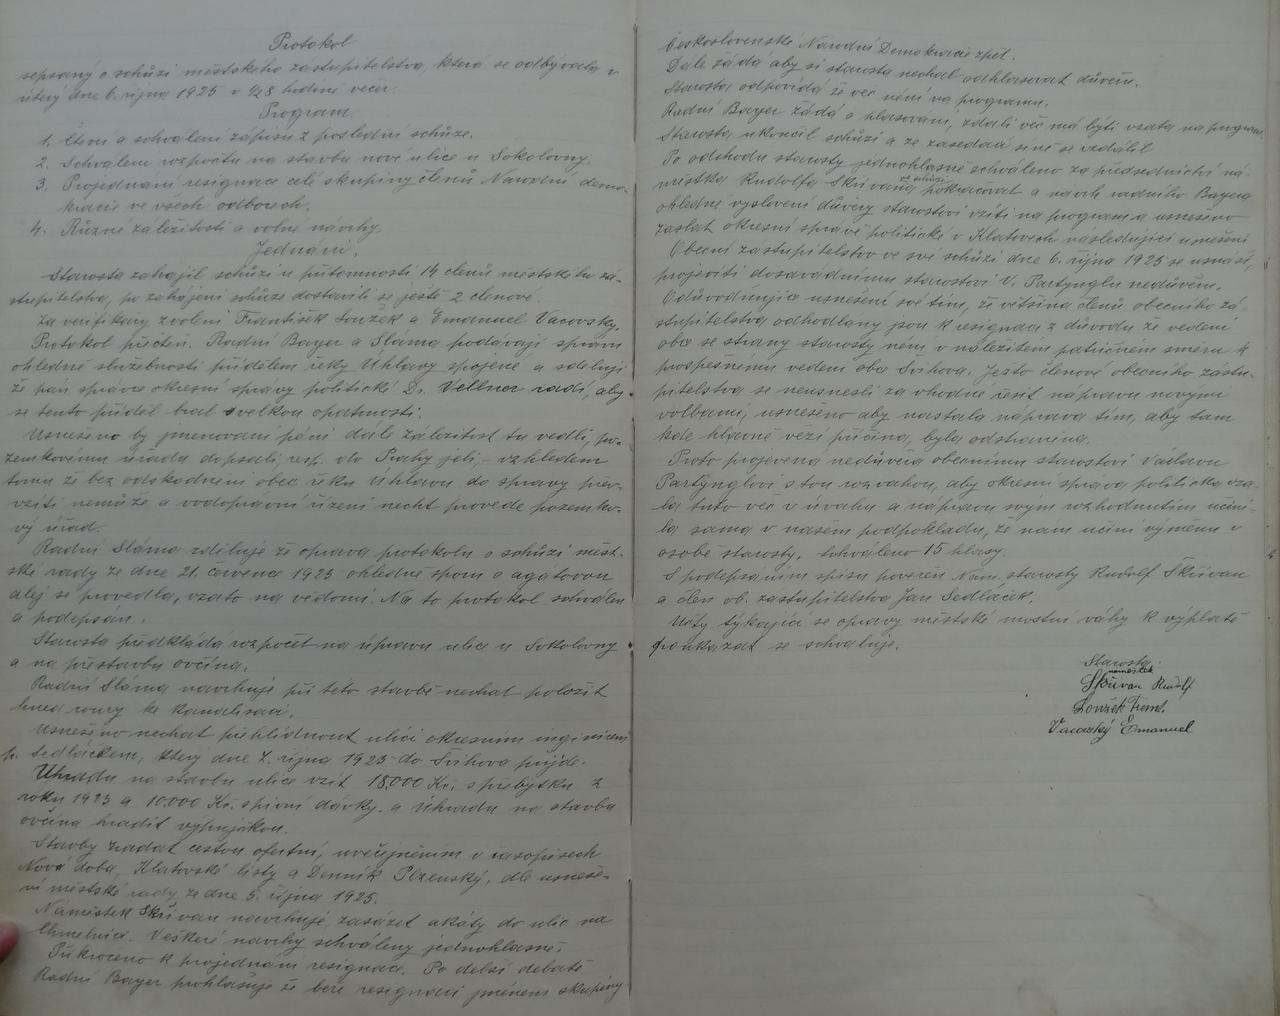 Protokol
sepsaný o schůzi městského zastupitelstva, která se odbývala v
úterý dne 6. října 1925 v ½8 hodině večer.
Program.
1. Čtení a schválení zápisu z poslední schůze.
2. Schválení rozpočtu na stavbu nové ulice u Sokolovny.
3. Projednání resignace celé skupiny členů Národní demo-
kracie ve všech odborech.
4. Různé záležitosti a volné návrhy.
Jednání.
Starosta zahájil schůzi u přítomnosti 14 členů městského za-
stupitelstva, po zahájení schůze dostavili se ještě 2 členové.
Za verifikary zvoleni František Louzek a Emanuel Vacovský.
Protokol přečten. Radní Bayer a Sláma podávají zprávu
ohledně služebností přídělem řeky Úhlavy spojené a sdělují
že pan správce okresní správy politické Dr. Vellner radí, aby
se tento příděl bral s velkou opatrností.
Usneseno by jmenovaní páni dále záležitost tu vedli, po-
zemkovému úřadu dopsali, resp. do Prahy jeli, - vzhledem
tomu že bez odškodnění obec řeku Úhlavu do správy přev-
zíti nemůže a vodoprávní řízení nechť provede pozemko-
vý úřad.
Radní Sláma sděluje že oprava protokolu o schůzi měst-
ské rady ze dne 21. července 1925 ohledně sporu o agátovou
alej se provedla, vzato na vědomí. Na to protokol schválen
a podepsán.
Starosta předkládá rozpočet na úpravu ulice u Sokolovny
a na přestavbu ovčína.
Radní Sláma navrhuje při této stavbě nechat položit
hned roury ke kanalisaci.
Usneseno nechat přehlédnout ulici okresním inginírem
p. Sedláčkem, který dne 7. října 1925 do Švihova přijde.
Úhradu na stavbu ulice vzít 18.000 Kč. z přebytku z
roku 1923 a 10.000 Kč. z pivní dávky. a Úhradu na stavbu
ovčína hradit výpujčkou.
Stavby zadat cestou ofertní, uveřejněním v časopisech
Nová doba, Klatovské listy a Denník Plzenský, dle usneše-
ní městské rady ze dne 5. října 1925.
Náměstek Skřivan navrhuje, zasázet akáty do ulic na
Chmelnici. Veškeré návrhy schváleny jednohlasně.
Přikročeno k projednání resignace. Po delší debatě
Radní Bayer prohlašuje že béře resignaci jménem skupiny
Československé Národní Demokracie zpět.
Dále žádá aby si starosta nechal odhlasovat důvěru.
Starosta odpovídá že věc není na programu.
Radní Bayer žádá o hlasování, zdali věc má býti vzata na program.
Starosta ukončil schůzi a ze zasedací síně se vzdálil
Po odchodu starosty jednohlasně schváleno za předsednictví ná-
městka Rudolfa Skřivana ve schůzi pokračovat a návrh radního Bayera
ohledně vyslovení důvěry starostovi vzíti na program a usneseno
zaslat okresní správě politické v Klatovech následující usnešení
Obecní zastupitelstvo ve své schůzi dne 6. října 1925 se usnáší,
projeviti dosavadnímu starostovi V. Partynglu nedůvěru.
Odůvodňujíce usnešení své tím, že většina členů obecního za-
stupitelstva odhodlány jsou k resignaci z důvodu že vedení
obce se strany starosty není v náležitém patřičném směru k
prospěšnému vedení obce Švihova. Ježto členové obecního zastu-
pitelstva se neusnesli za vhodné řešit nápravu novými
volbami, usneseno aby nastala náprava tím, aby tam
kde hlavně vězí příčina, byla odstraněna.
Proto projevená nedůvěra obecnímu starostovi Václavu
Partynglovi s tou rozvahou, aby okresní správa politická vza-
la tuto věc v úvahu a nápravu svým rozhodnutím učini-
la sama v našem podpokladu, že nám učiní výměnu v
osobě starosty. Schváleno 15 hlasy.
S podepsáním spisu pověřen Nám. starosty Rudolf Skřivan
a člen ob. zastupitelstva Jan Sedláček.
Účty týkající se opravy městské mostní váhy k výplatě
poukázat se schvaluje.
Starosta:
náměstek
Skřivan Rudolf
Louzek Frant.
Vacovský Emanuel